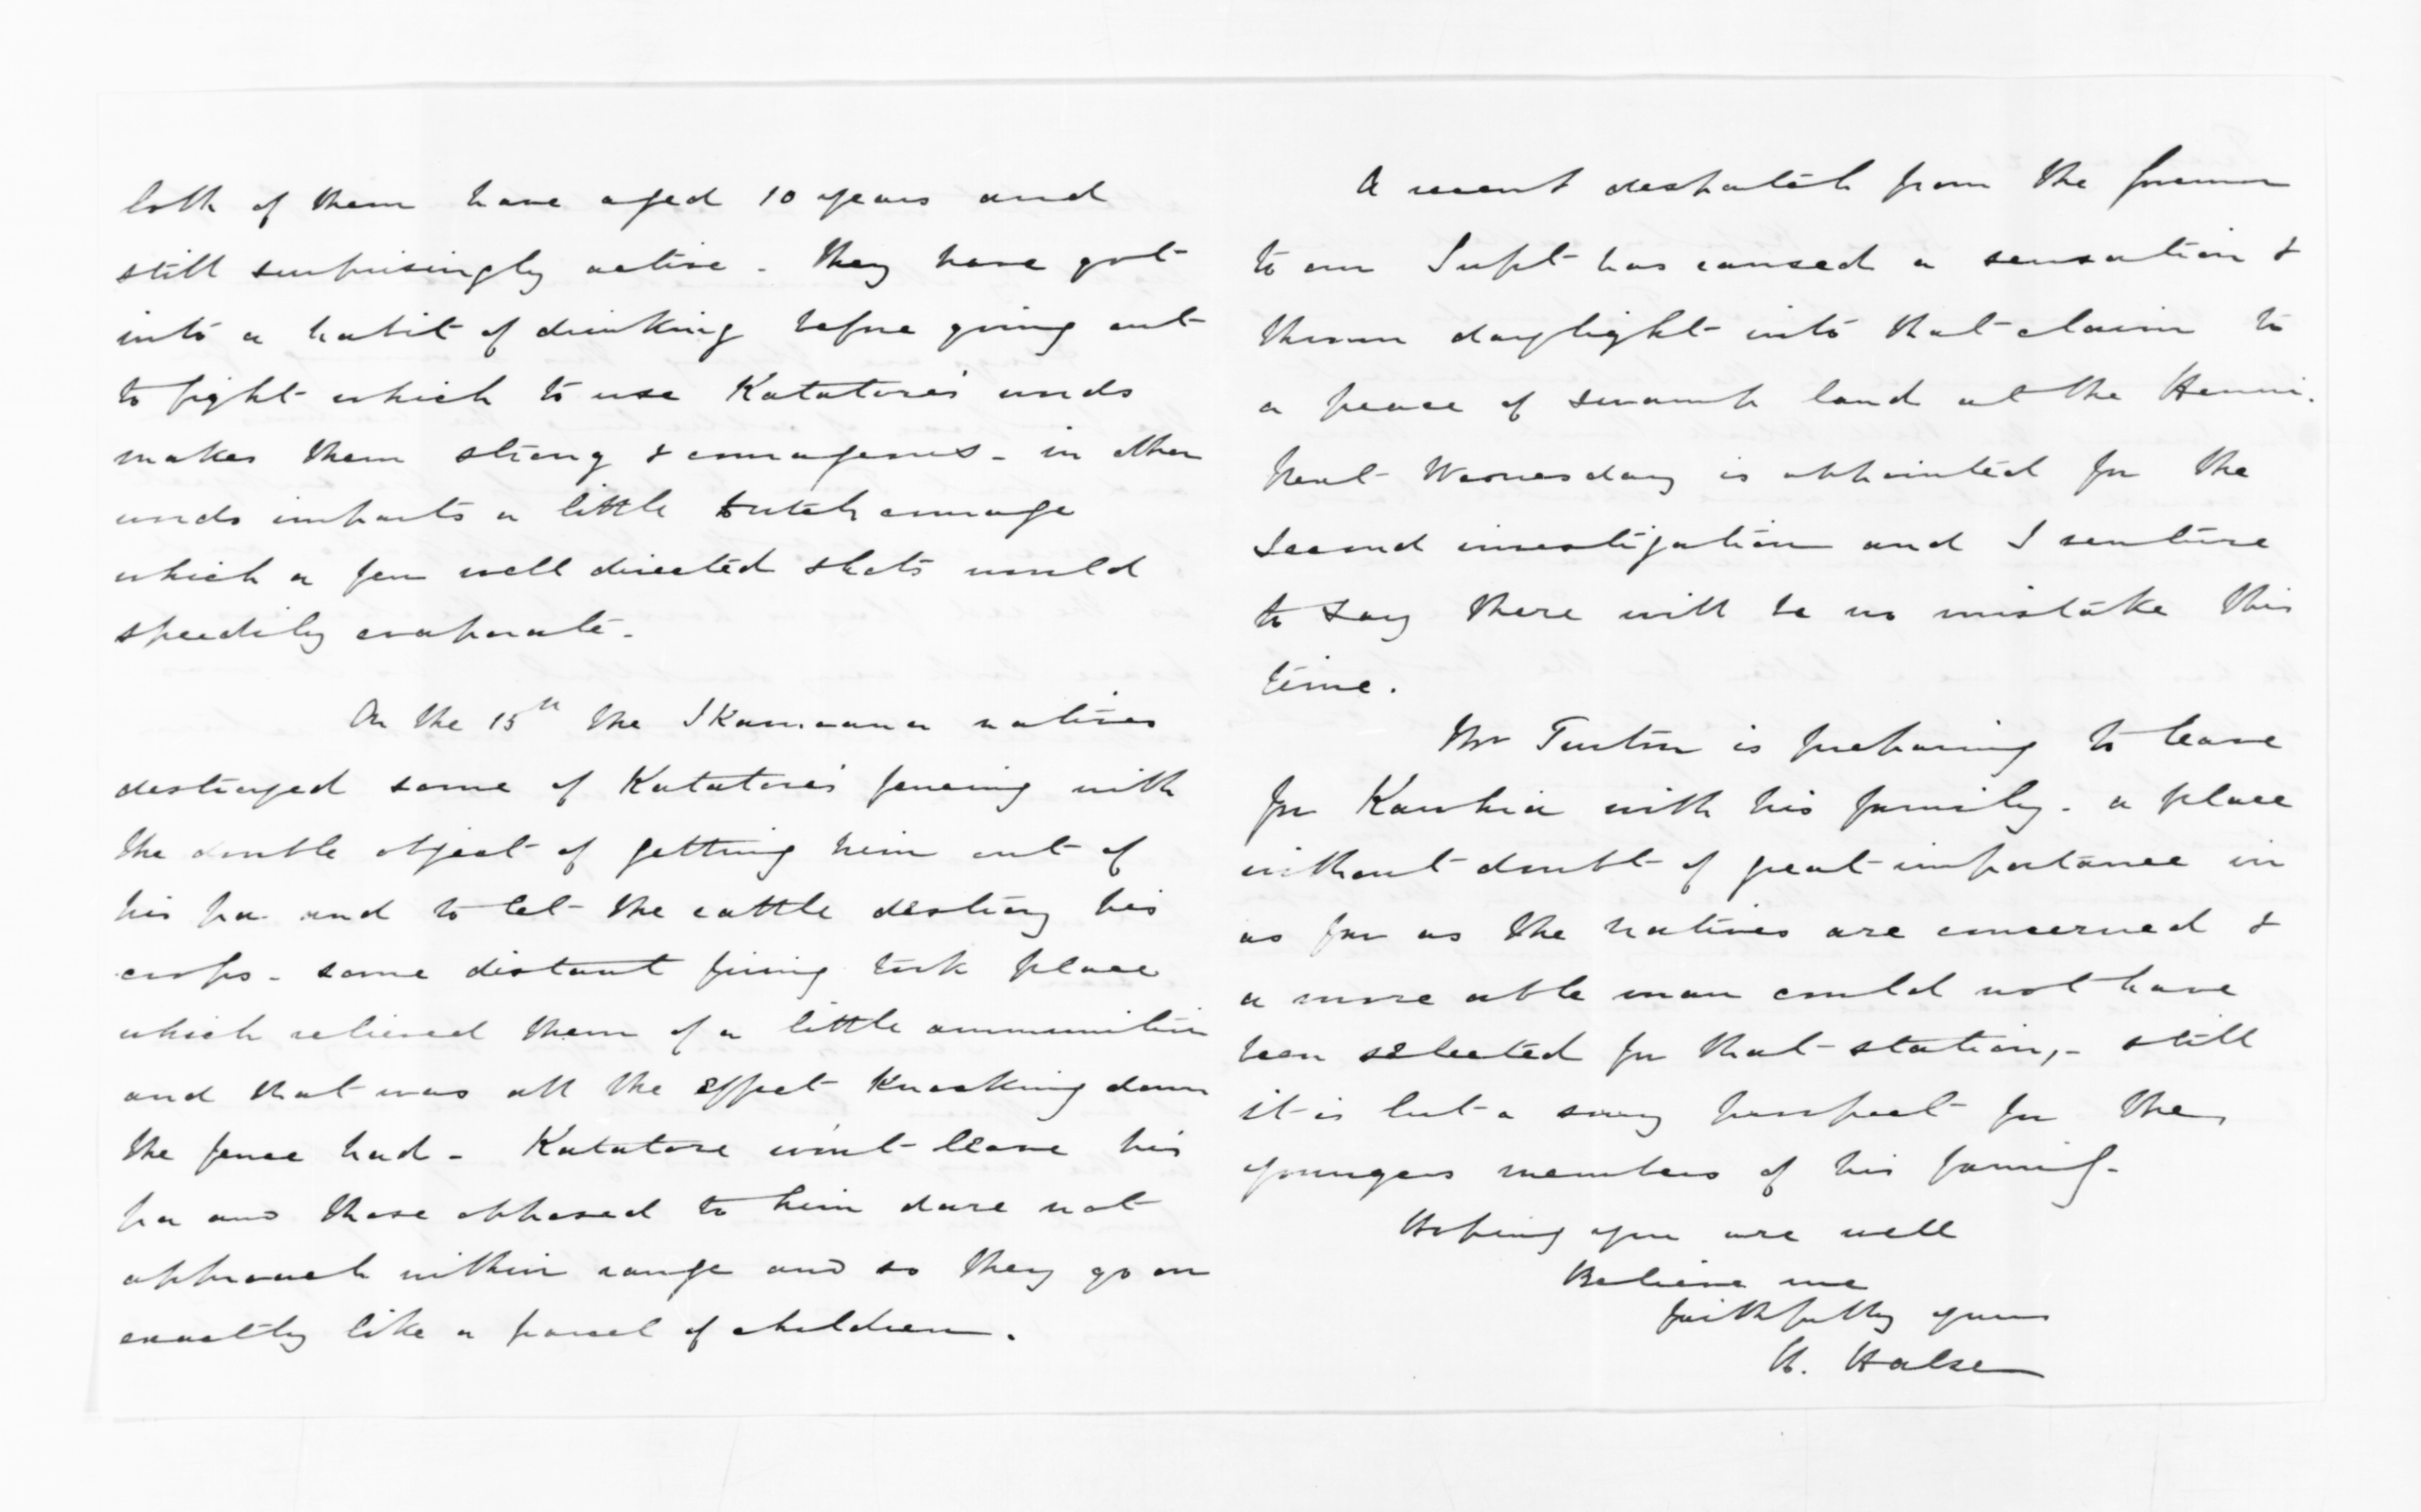 both of them have aged 10 years and
still surprisingly active - They have got
into a habit of drinking before going out
to fight which to use Katatore's words
makes them strong & courageous - in other
words imparts a little Dutch courage
which a few well directed shots would
speedily evaporate -
On the 15th the Ikamoana natives
destroyed some of Katatore's fencing with
the double object of getting him out of
his pa and to let the cattle destroy his
crops - some distant firing took place
which relieved them of a little ammunition
and that was all the effect knocking down
the fence had - Katatore won't leave his
pa and those opposed to him dare not
approach within range and so they go on
exactly like a parcel of children.
A recent despatch from the Governor
to our Supt has caused a sensation &
thrown daylight into that claim to
a peace of swamp land at the Henui.
Next Wednesday is appointed for the
second investigation and I venture
to say there will be no mistake this
time.
Mr Turton is preparing to leave
for Kawhia with his family - a place
without doubt of great importance in
as far as the natives are concerned &
a more able man could not have
been selected for that station, - still
it is but a sorry prospect for the
youngers members of his family -
Hoping you are well
Believe me
faithfully yours
H. Halse